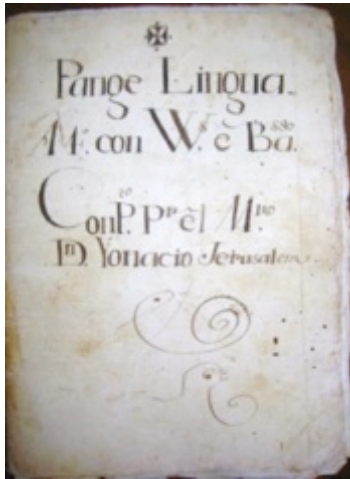 Pange Lingua.
A 4º. con Vs. è Baſſo.
Conp.to Pr èl Mro.
Dn. Ygnacio Jerusalem